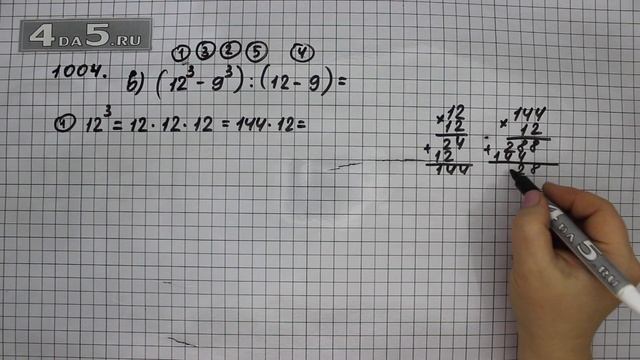 4DA5.RU
① ③ ② ⑤ ④
1004. в) (12³ - 9³) : (12 - 9) =
① 12³ = 12 · 12 · 12 = 144 · 12 =
× 12
12
+ 24
12
144
× 144
12
+ 288
144
28
4DA5.RU